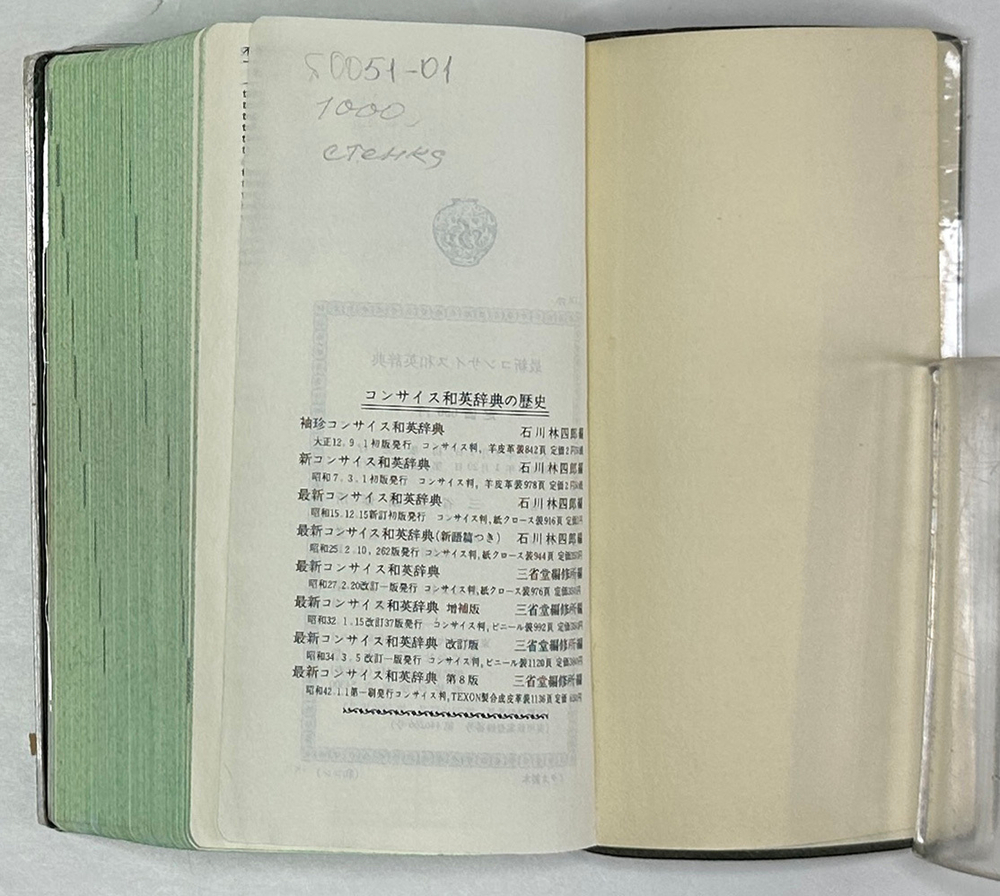 50051-01
1000
стенка
コンサイス和英辞典の歴史
袖珍コンサイス和英辞典 石川林四郎編
大正12.9.1初版発行 コンサイス判, 羊皮革装842頁 定価2円
新コンサイス和英辞典 石川林四郎編
昭和7.3.1初版発行 コンサイス判, 羊皮革装978頁 定価2円
最新コンサイス和英辞典 石川林四郎編
昭和15.12.15新訂初版発行 コンサイス判,紙クロース装916頁 定価
最新コンサイス和英辞典(新語篇つき) 石川林四郎編
昭和25.2.10,262版発行 コンサイス判,紙クロース装944頁 定価
最新コンサイス和英辞典 三省堂編修所編
昭和27.2.20改訂一版発行 コンサイス判,紙クロース装976頁 定価
最新コンサイス和英辞典 増補版 三省堂編修所編
昭和32.1.15改訂37版発行 コンサイス判,ビニール装992頁 定価
最新コンサイス和英辞典 改訂版 三省堂編修所編
昭和34.3.5改訂一版発行 コンサイス判,ビニール装1120頁 定価
最新コンサイス和英辞典 第8版 三省堂編修所編
昭和42.1.1第一刷発行コンサイス判,TEXON製合成皮革装1136頁 定価